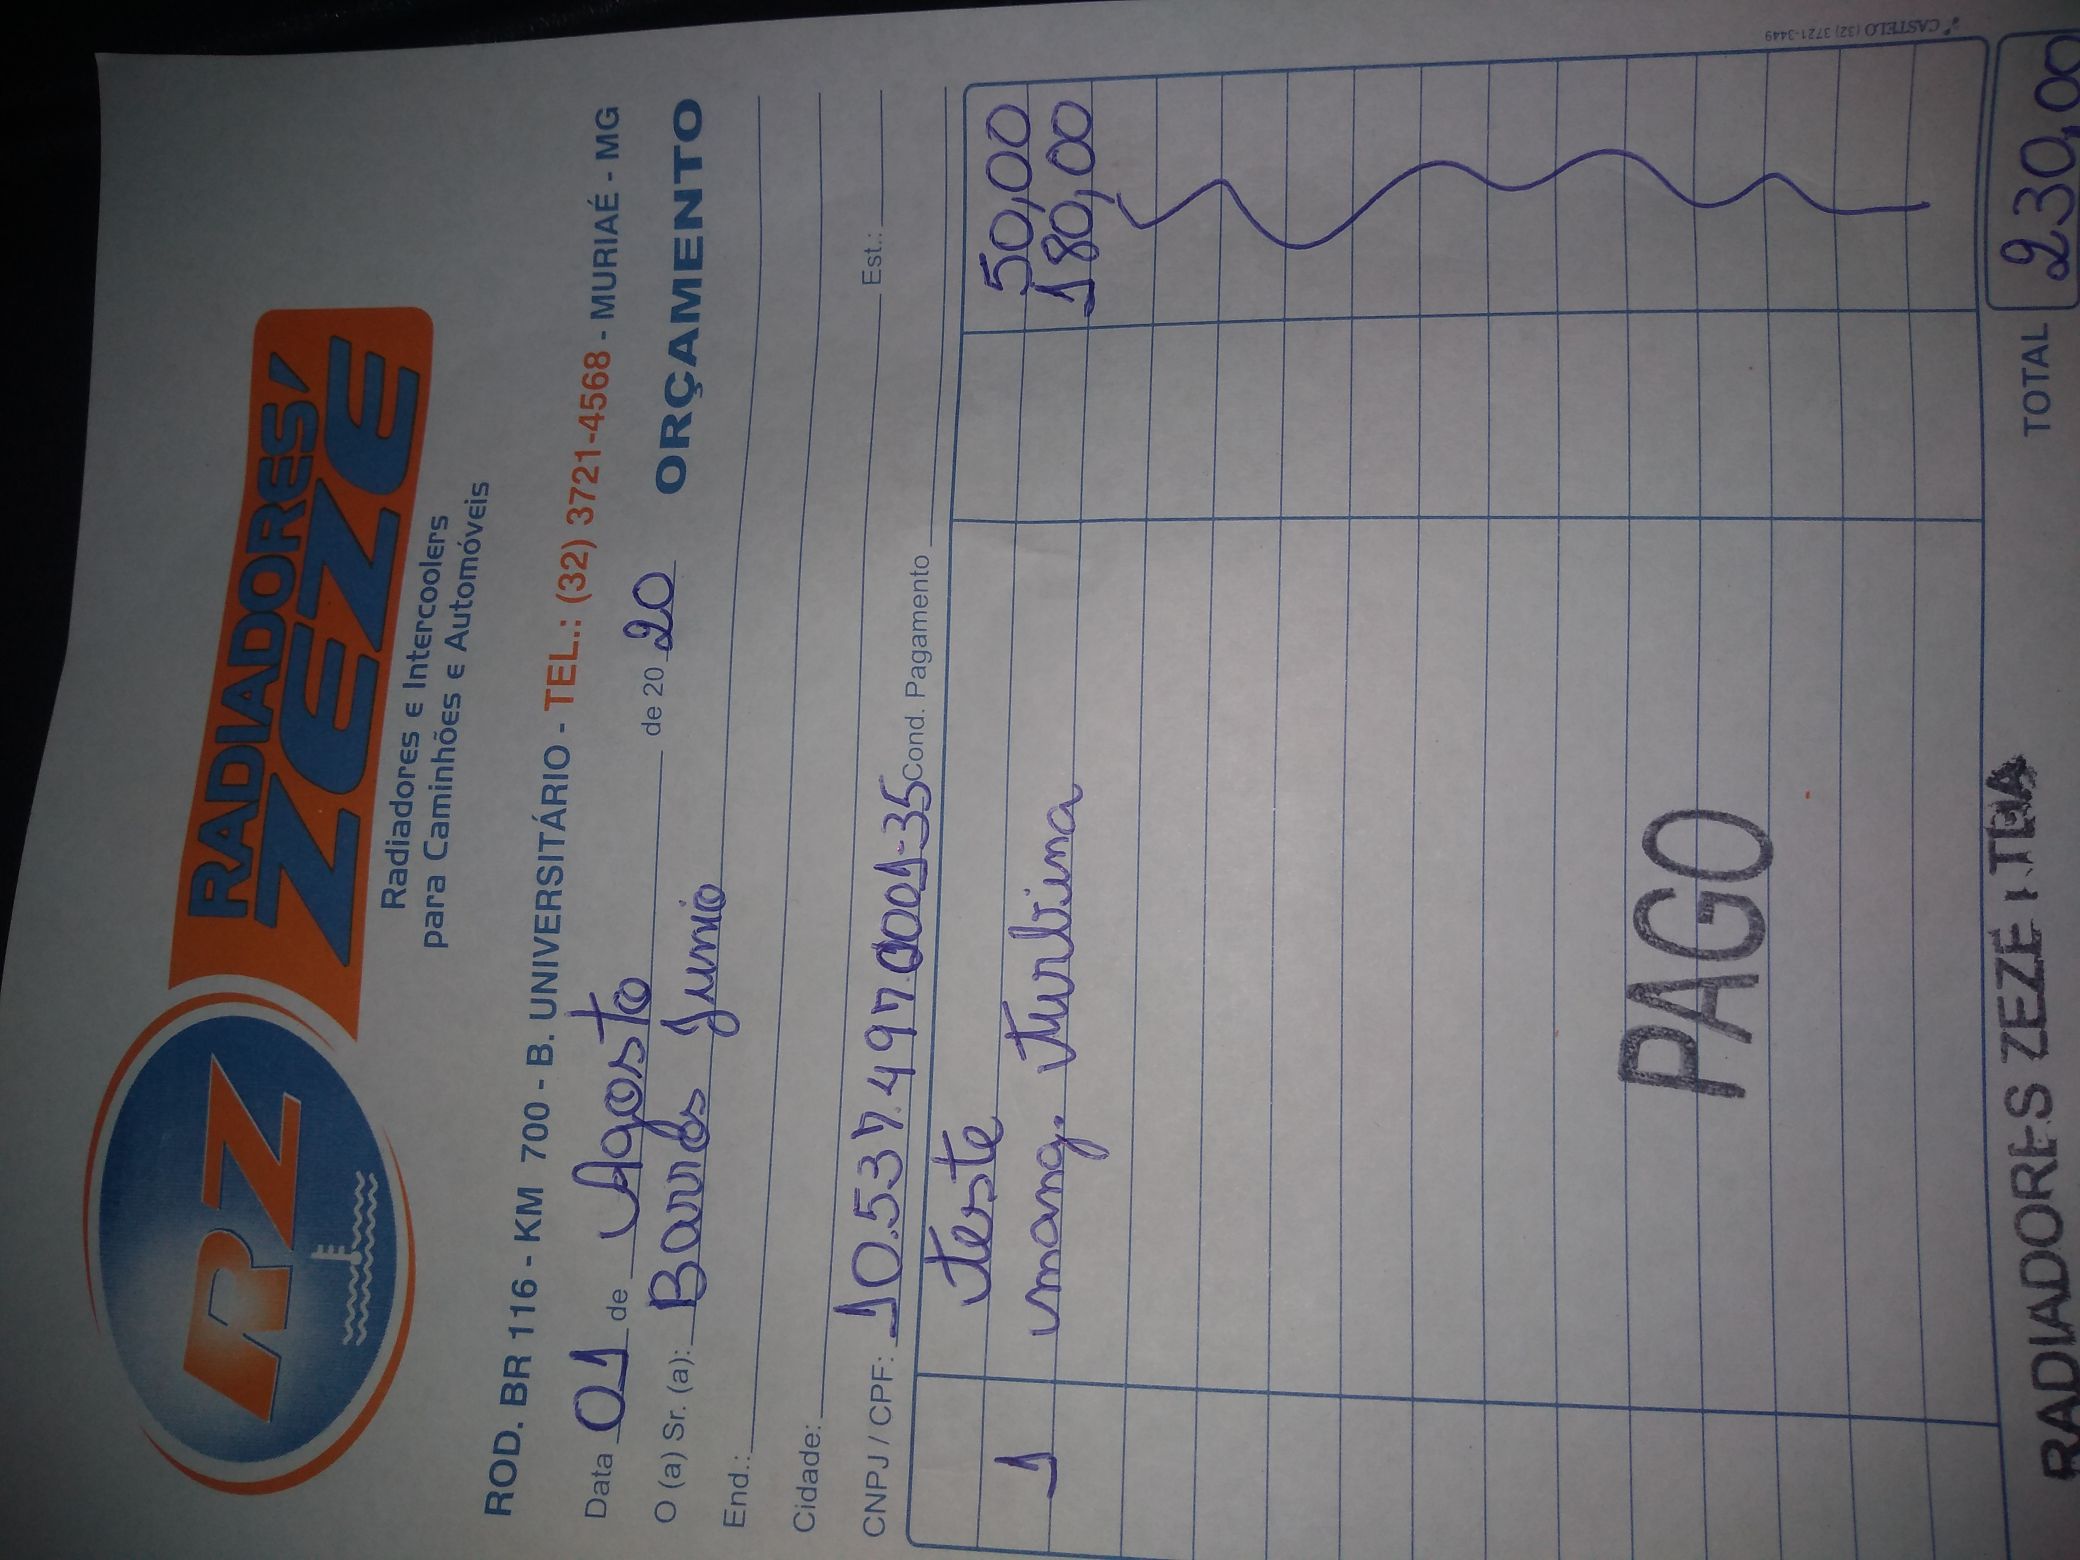 RZ
RADIADORES'
ZEZE
Radiadores e Intercoolers
para Caminhões e Automóveis
ROD. BR 116 - KM 700 - B. UNIVERSITÁRIO - TEL.: (32) 3721-4568 - MURIAÉ - MG
Data 01 de Agosto de 20 20 ORÇAMENTO
O (a) Sr. (a): Barros Junio
End.:
Cidade: Est.:
CNPJ / CPF: 10.537.497.0001-35 Cond. Pagamento
Teste 50,00
1 mang. turbina 180,00
PAGO
RADIADORES ZEZE LTDA
TOTAL 230,00
CASTELO (32) 3721-3449